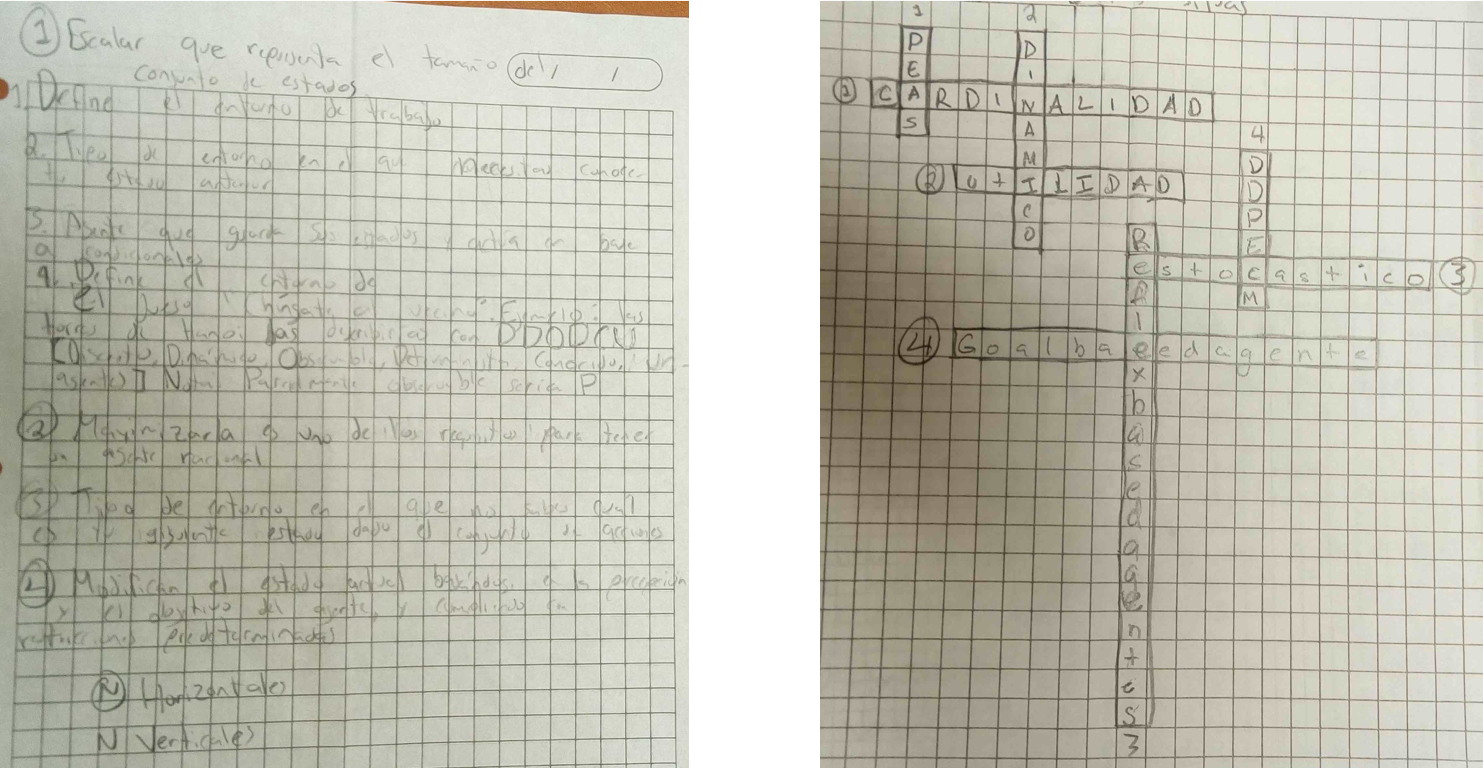 ① Escalar que representa el tamaño del
conjunto de estados
1. Define el entorno de trabajo
2. Tipo de entorno en el que necesitas conocer
tu estado anterior
3. Agente que guarda sus estados y actúa en base
a condicionales
4. Define el entorno de
el juego "Chingate al vecino". Ejemplo: las
torres de Hanoi las describirías con DDODCU
[Discreto, Dinámico, Observable, Determinista, Conocido, Un
agente] Nota: Parcialmente observable sería P
② Maximizarla es uno de los requisitos para tener
un agente racional
③ Tipo de entorno en el que no sabes cual
es tu siguiente estado dado el conjunto de acciones
④ Modifican el estado actual a la percepción
y el objetivo del agente, y
predeterminadas
Ⓝ Horizontales
N Verticales
1 2
PEAS
DINAMICO
① CARDINALIDAD
4
DDPEEM
② UtILIDAD
Reflexbasedagentes
estocastico ③
④ Goalbaeedagente
3